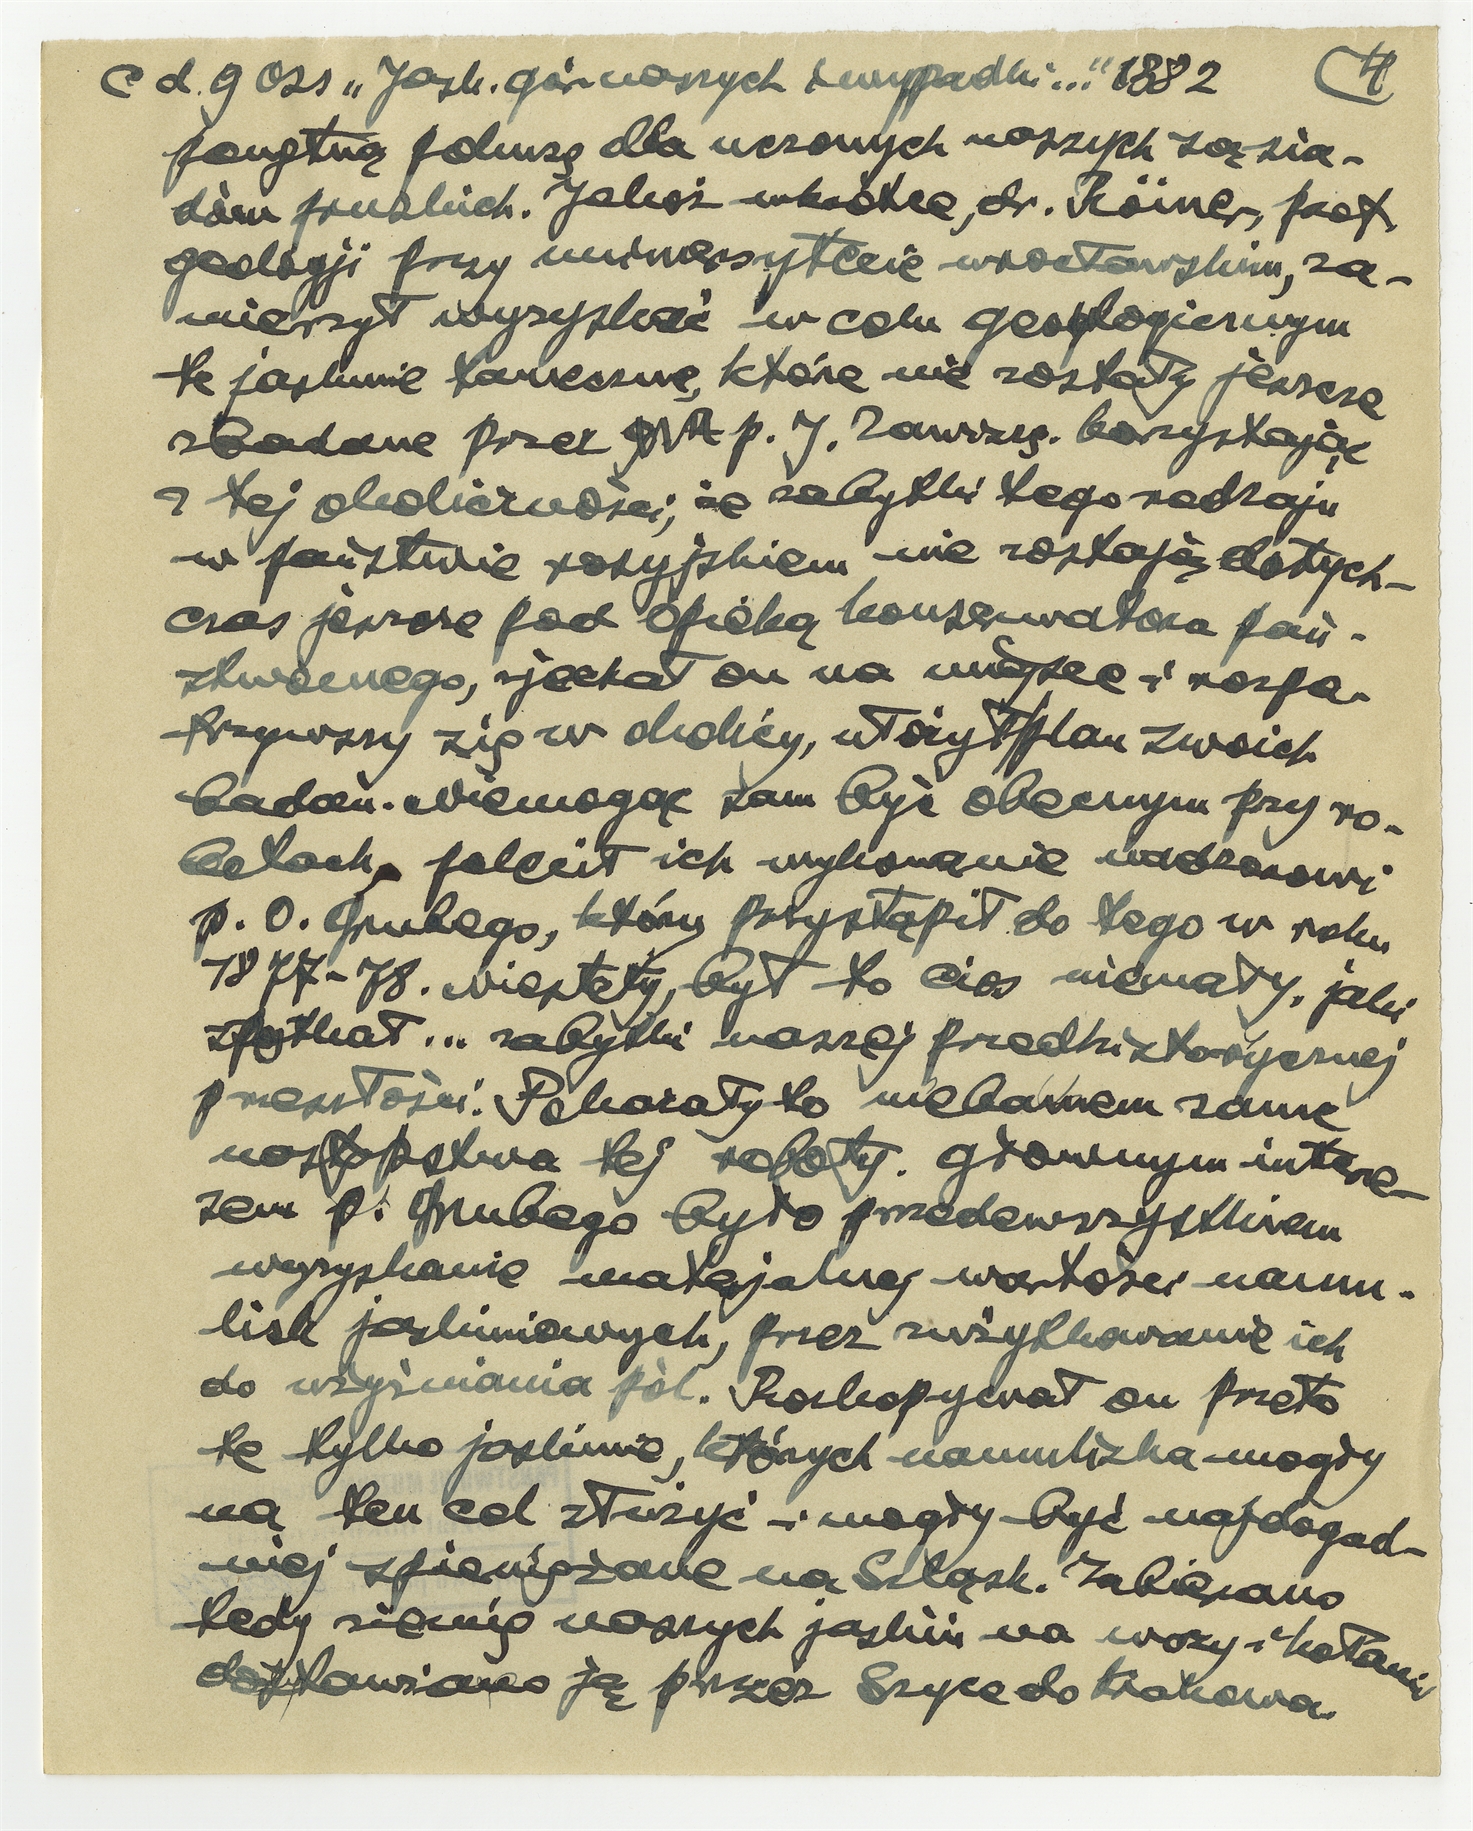 C d. 9 Oss „Jask. gór naszych i wypadki..." 1882 4
ponętną pokusę dla uczonych naszych sąsia-
dów pruskich. Jakoż wkrótce, dr. Römer, prof.
geologji przy uniwersytecie wrocławskim, za-
mierzył wyzyskać w celu geologicznym
te jaskinie tameczne, które nie zostały jeszcze
zbadane przez p. J. Zawiszę. Korzystając
z tej okoliczności, że zabytki tego rodzaju
w państwie rosyjskiem nie zostają dotych-
czas jeszcze pod opieką konserwatora pań-
stwowego, zjechał on na miejsce i rozpa-
trzywszy się w okolicy, ułożył plan swoich
badań. Niemogąc sam być obecnym przy ro-
botach, polecił ich wykonanie nadzorowi
p. O. Grubego, który przystąpił do tego w roku
1877-78. Niestety, był to cios niemały, jaki
spotkał... zabytki naszej przedhistorycznej
przeszłości. Pokazały to niebawem same
następstwa tej roboty. Głównym intere-
sem p. Grubego było przedewszystkiem
wyzyskanie materjalnej wartości namu-
lisk jaskiniowych, przez zużytkowanie ich
do użyźniania pól. Rozkopywał on przeto
te tylko jaskinie, których namuliska mogły
na ten cel służyć i mogły być najdogod-
niej spieniężane na Szląsk. Zabierano
tedy ziemię naszych jaskiń na wozy i kołami
dostawiano ją przez Szyce do Krakowa.